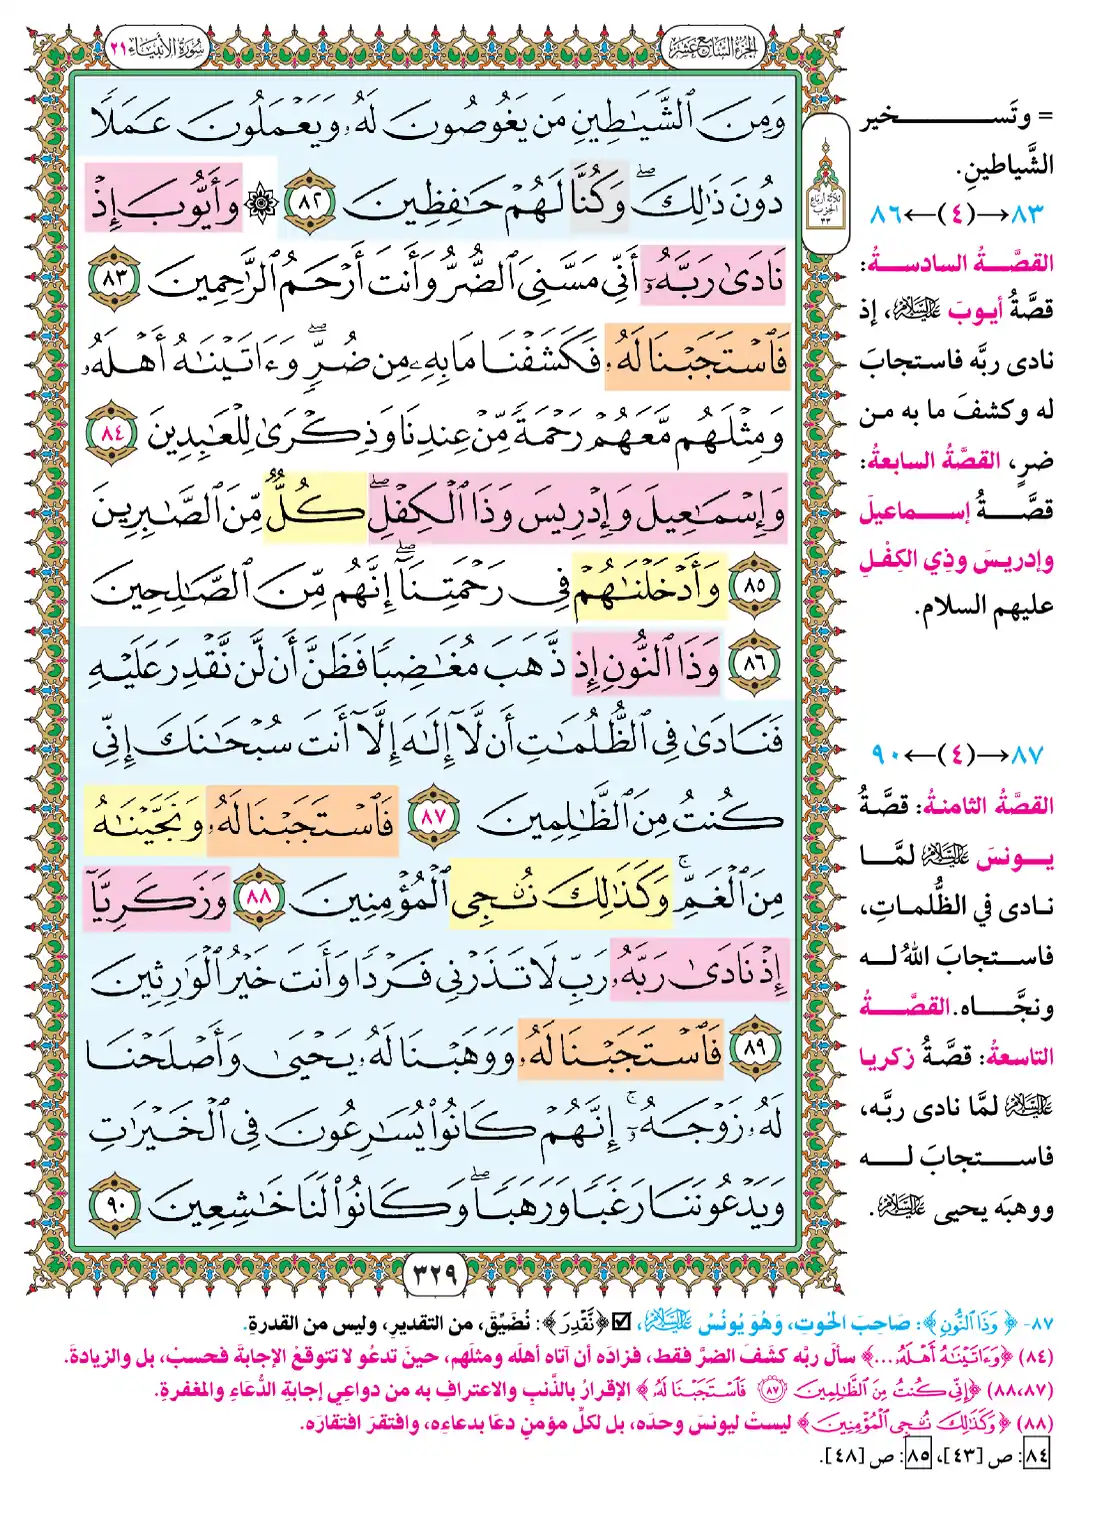 سُورَةُ الأَنبِيَاء ٢١
الجُزْءُ السَّابِعَ عَشَرَ
وَمِنَ ٱلشَّيَٰطِينِ مَن يَغُوصُونَ لَهُۥ وَيَعْمَلُونَ عَمَلًا
دُونَ ذَٰلِكَۖ وَكُنَّا لَهُمْ حَٰفِظِينَ ٨٢ ۞ وَأَيُّوبَ إِذْ
نَادَىٰ رَبَّهُۥٓ أَنِّي مَسَّنِيَ ٱلضُّرُّ وَأَنتَ أَرْحَمُ ٱلرَّٰحِمِينَ ٨٣
فَٱسْتَجَبْنَا لَهُۥ فَكَشَفْنَا مَا بِهِۦ مِن ضُرٍّۖ وَءَاتَيْنَٰهُ أَهْلَهُۥ
وَمِثْلَهُم مَّعَهُمْ رَحْمَةً مِّنْ عِندِنَا وَذِكْرَىٰ لِلْعَٰبِدِينَ ٨٤
وَإِسْمَٰعِيلَ وَإِدْرِيسَ وَذَا ٱلْكِفْلِۖ كُلٌّ مِّنَ ٱلصَّٰبِرِينَ
٨٥ وَأَدْخَلْنَٰهُمْ فِي رَحْمَتِنَآۖ إِنَّهُم مِّنَ ٱلصَّٰلِحِينَ
٨٦ وَذَا ٱلنُّونِ إِذ ذَّهَبَ مُغَٰضِبًا فَظَنَّ أَن لَّن نَّقْدِرَ عَلَيْهِ
فَنَادَىٰ فِي ٱلظُّلُمَٰتِ أَن لَّآ إِلَٰهَ إِلَّآ أَنتَ سُبْحَٰنَكَ إِنِّي
كُنتُ مِنَ ٱلظَّٰلِمِينَ ٨٧ فَٱسْتَجَبْنَا لَهُۥ وَنَجَّيْنَٰهُ
مِنَ ٱلْغَمِّۚ وَكَذَٰلِكَ نُۨجِي ٱلْمُؤْمِنِينَ ٨٨ وَزَكَرِيَّآ
إِذْ نَادَىٰ رَبَّهُۥ رَبِّ لَا تَذَرْنِي فَرْدًا وَأَنتَ خَيْرُ ٱلْوَٰرِثِينَ
٨٩ فَٱسْتَجَبْنَا لَهُۥ وَوَهَبْنَا لَهُۥ يَحْيَىٰ وَأَصْلَحْنَا
لَهُۥ زَوْجَهُۥٓۚ إِنَّهُمْ كَانُوا۟ يُسَٰرِعُونَ فِي ٱلْخَيْرَٰتِ
وَيَدْعُونَنَا رَغَبًا وَرَهَبًاۖ وَكَانُوا۟ لَنَا خَٰشِعِينَ ٩٠
٣٢٩
ثلاثة أرباع
الحزب
٣٣
= وتَسخير
الشَّياطينِ.
٨٣→(٤)←٨٦
القصَّةُ السادسةُ:
قصَّةُ أيوبَ عليه السلام، إذ
نادى ربَّه فاستجابَ
له وكشفَ ما به من
ضرٍ، القصَّةُ السابعةُ:
قصَّةُ إسماعيلَ
وإدريسَ وذي الكِفْلِ
عليهم السلام.
٨٧→(٤)←٩٠
القصَّةُ الثامنةُ: قصَّةُ
يونسَ عليه السلام لمَّا
نادى في الظُّلماتِ،
فاستجابَ اللهُ له
ونجَّاه. القصَّةُ
التاسعةُ: قصَّةُ زكريا
عليه السلام لمَّا نادى ربَّه،
فاستجابَ له
ووهبَه يحيى عليه السلام.
٨٧- ﴿وَذَا ٱلنُّونِ﴾: صَاحِبَ الحُوتِ، وَهُوَ يُونُسُ عليه السلام، ☑ ﴿نَّقْدِرَ﴾: نُضَيِّقَ، من التقديرِ، وليس من القدرةِ.
(٨٤) ﴿وَءَاتَيْنَٰهُ أَهْلَهُۥ...﴾ سألَ ربَّه كشفَ الضرَّ فقط، فزادَه أن آتاه أهلَه ومثلَهم، حينَ تدعُو لا تتوقعْ الإجابةَ فحسبْ، بل والزيادةَ.
(٨٨،٨٧) ﴿إِنِّي كُنتُ مِنَ ٱلظَّٰلِمِينَ ٨٧ فَٱسْتَجَبْنَا لَهُۥ﴾ الإقرارُ بالذَّنبِ والاعترافِ به من دواعِي إجابةِ الدُّعَاءِ والمغفرةِ.
(٨٨) ﴿وَكَذَٰلِكَ نُۨجِي ٱلْمُؤْمِنِينَ﴾ ليستْ ليونسَ وحدَه، بل لكلِّ مؤمنٍ دعَا بدعاءِه، وافتقرَ افتقارَه.
٨٤: ص [٤٣]، ٨٥: ص [٤٨].